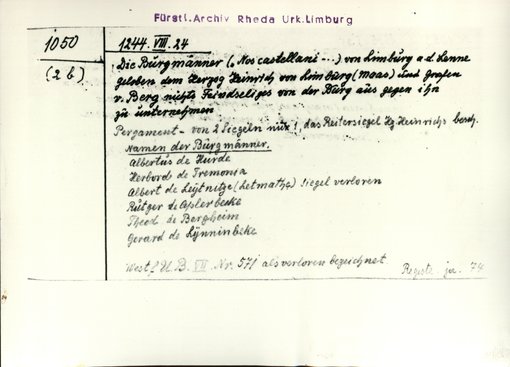 Fürstl. Archiv Rheda Urk. Limburg
1050
(2 b)
1244. VIII. 24
Die Burgmänner („Nos castellani ---) von Limburg a.d. Lenne
geloben dem Herzog Heinrich von Limburg (Maas) und Grafen
v. Berg nichts Feindseliges von der Burg aus gegen ihn
zu unternehmen
Pergament - von 2 Siegeln nur 1, das Reitersiegel Hg. Heinrichs besch.
Namen der Burgmänner.
Albertus de Hurde
Herbord de Tremonia
Albert de (Letmathe) Siegel verloren
Rütger de Aplerbeke
Theod. de Bergheim
Gerard de Lÿnninbeke
Westf. U.B. VII Nr. 571 als verloren bezeichnet
74